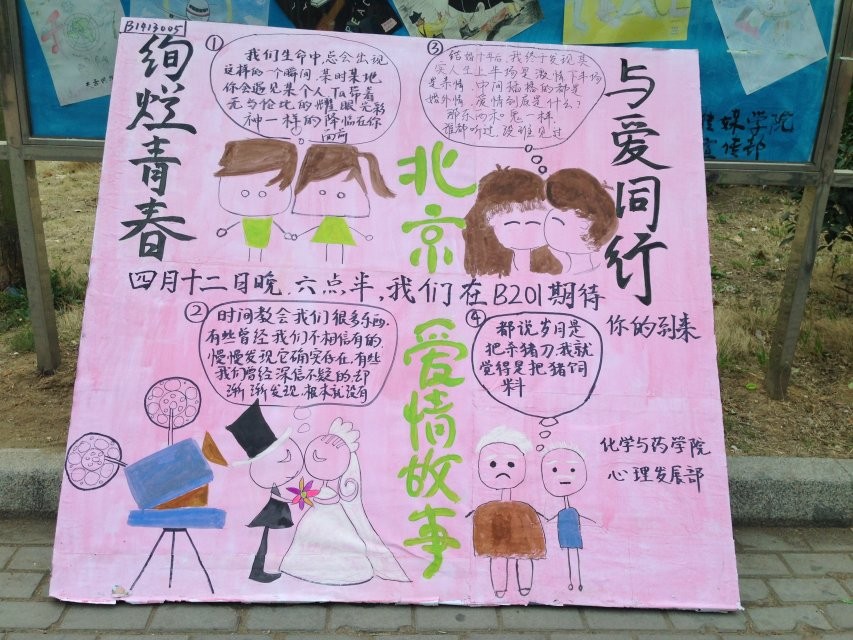 B1413005
绚烂青春
①
我们生命中,总会出现
这样的一个瞬间,某时某地
你会遇见某个人,Ta带着
无与伦比的耀眼光彩
神一样的降临在你
面前
③
结婚十年后,我终于发现其
实人生上半场是激情下半场
是亲情,中间的都是
婚外情,爱情到底是什么?
那东西和鬼一样,
谁都听过,没谁见过
与爱同行
北京
爱情故事
四月十二日晚,六点半,我们在B201期待
你的到来
②
时间教会我们很多东西,
有些曾经我们不相信有的,
慢慢发现它确实存在,有些
我们曾经深信不疑的,却
渐渐发现,根本就没有
④
都说岁月是
把杀猪刀,我就
觉得是把猪饲
料
化学与药学院
心理发展部
媒学院
宣传部